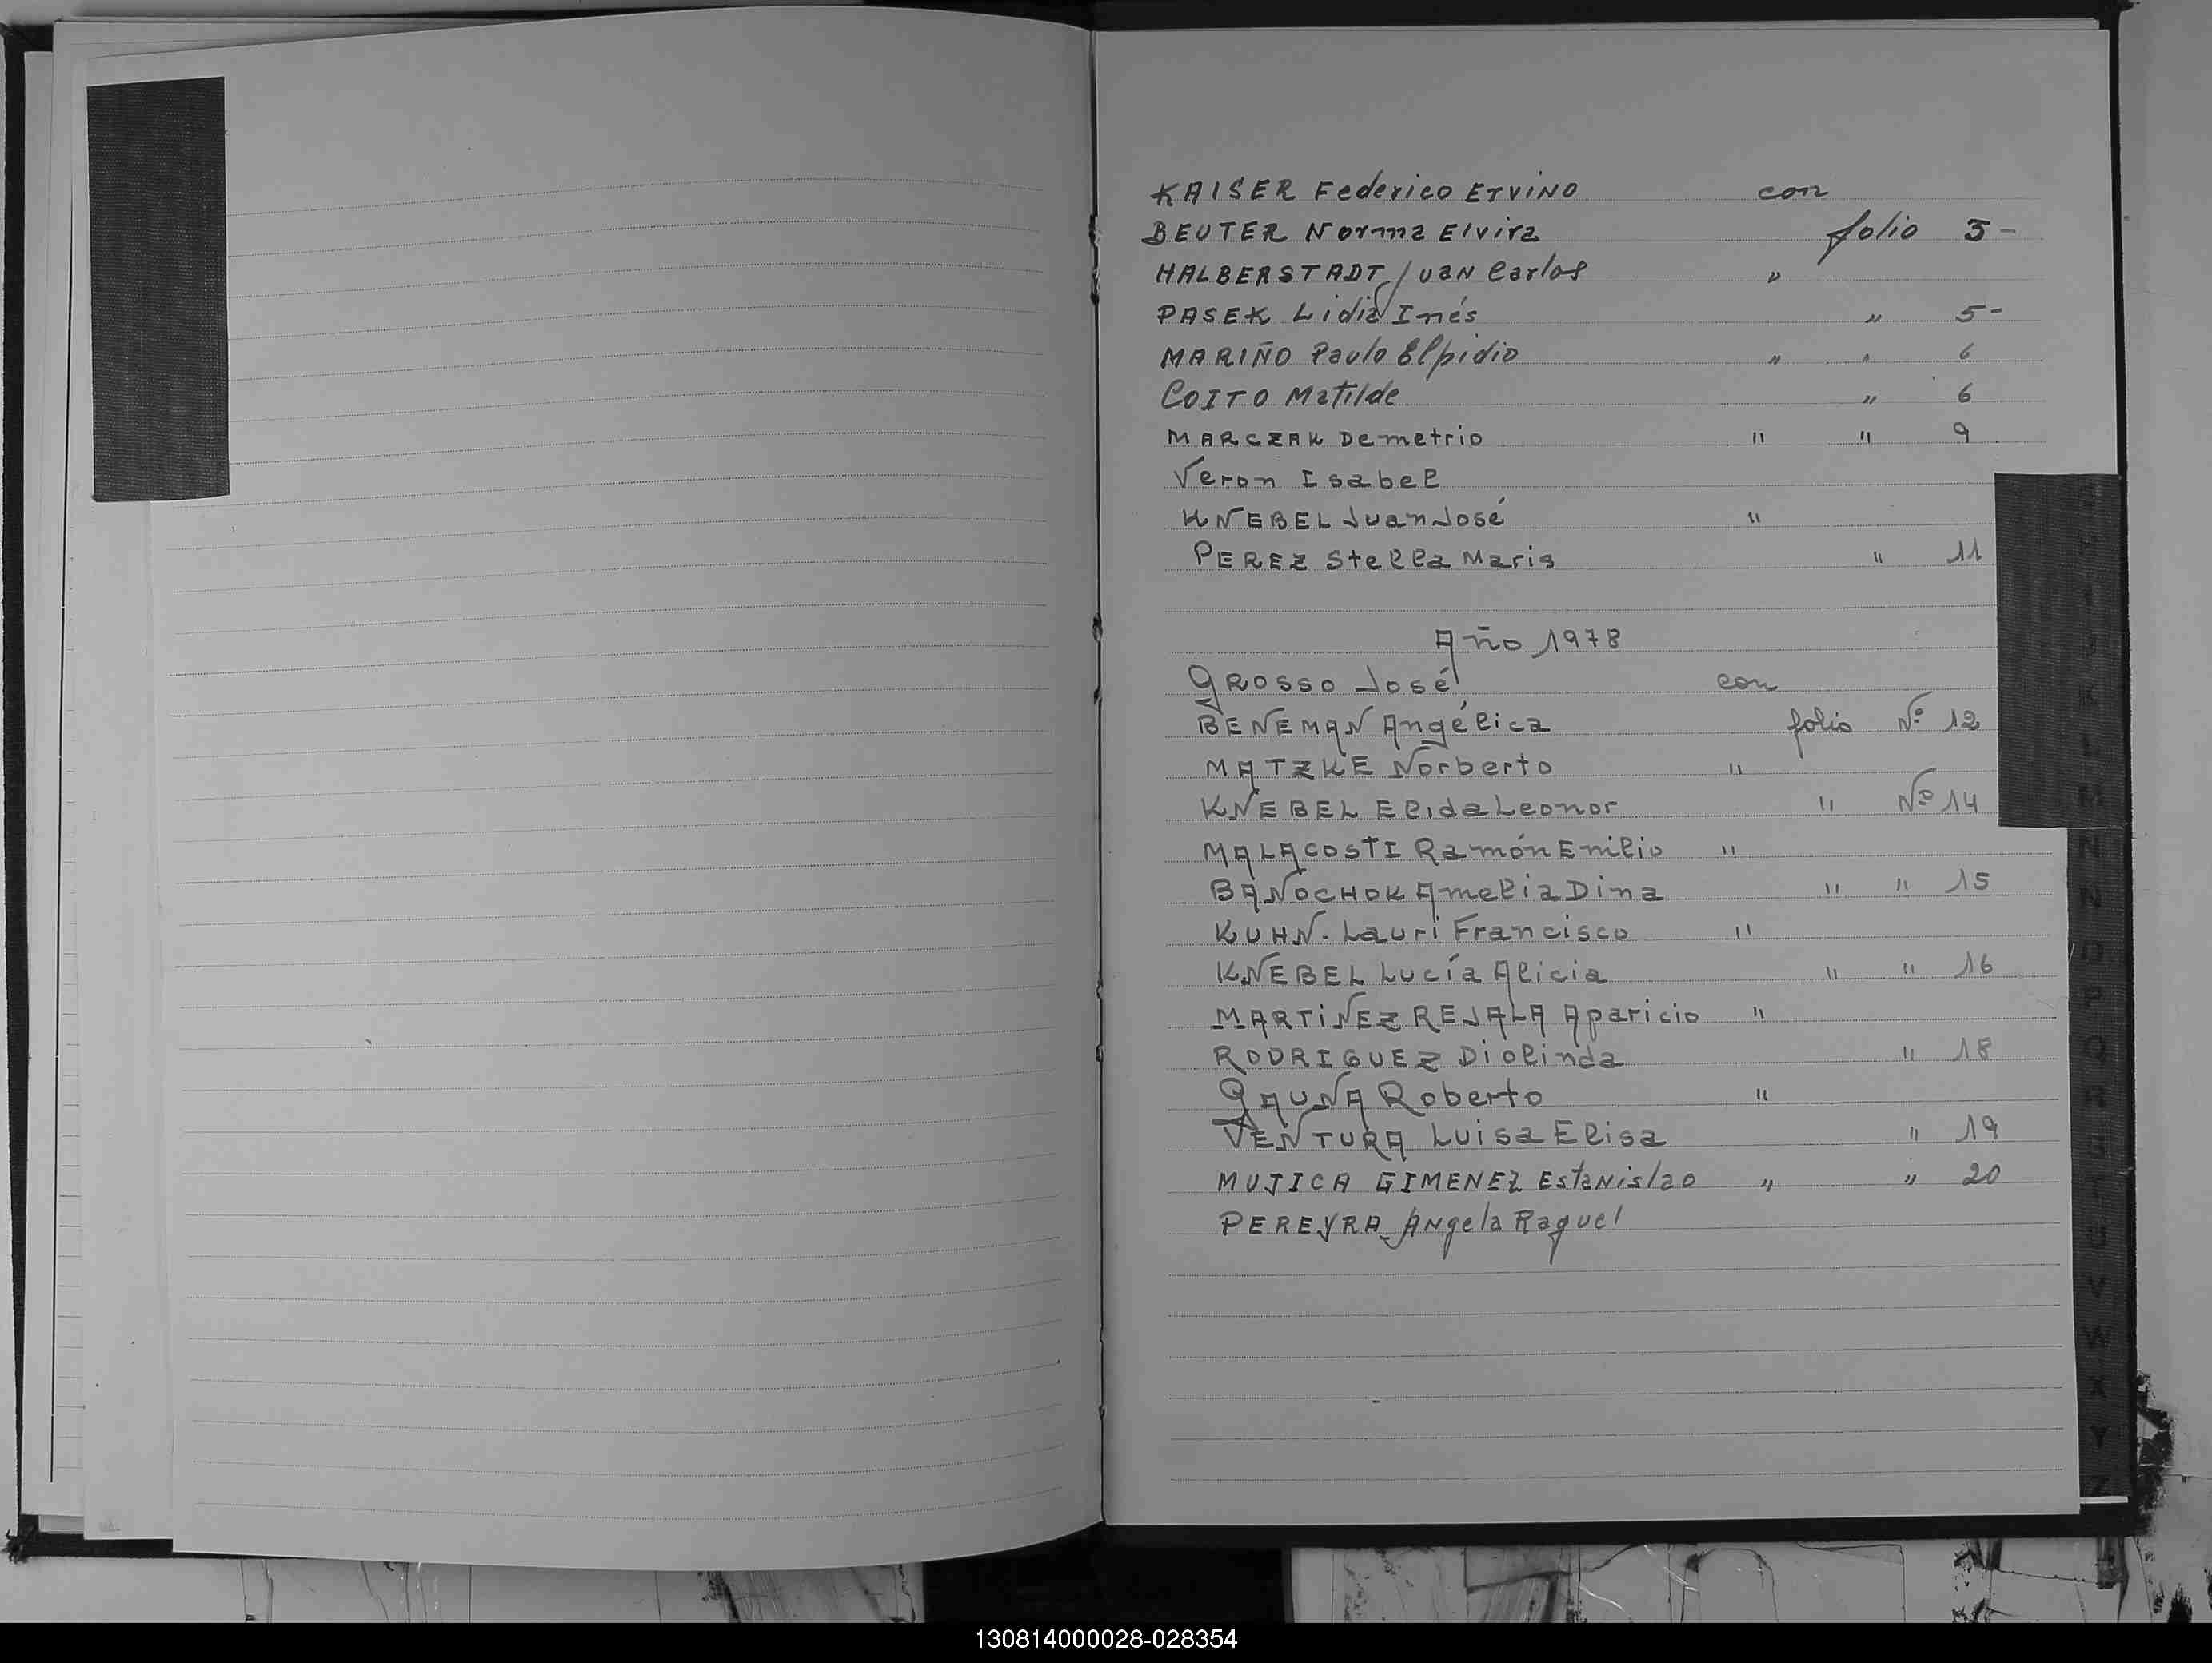 KAISER Federico Ervino con
BEUTER Norma Elvira folio 5-
HALBERSTADT Juan Carlos "
PASEK Lidia Inés " 5-
MARIÑO Paulo Elpidio " " 6
COITO Matilde " 6
MARCZAK Demetrio " " 9
Veron Isabel
KNEBEL Juan José "
PEREZ Stella Maris " 11
Año 1978
GROSSO José con
BENEMAN Angélica folio Nº 12
MATZKE Norberto "
KNEBEL Elida Leonor " Nº 14
MALACOSTI Ramón Emilio "
BANOCHOK Amelia Dina " " 15
KUHN. Lauri Francisco "
KNEBEL Lucía Alicia " " 16
MARTINEZ REJALA Aparicio "
RODRIGUEZ Diolinda " 18
GAUNA Roberto "
VENTURA Luisa Elisa " 19
MUJICA GIMENEZ Estanislao " " 20
PEREYRA Angela Raquel
M
N
Ñ
O
P
Q
R
S
T
U
V
W
X
Y
Z
130814000028-028354